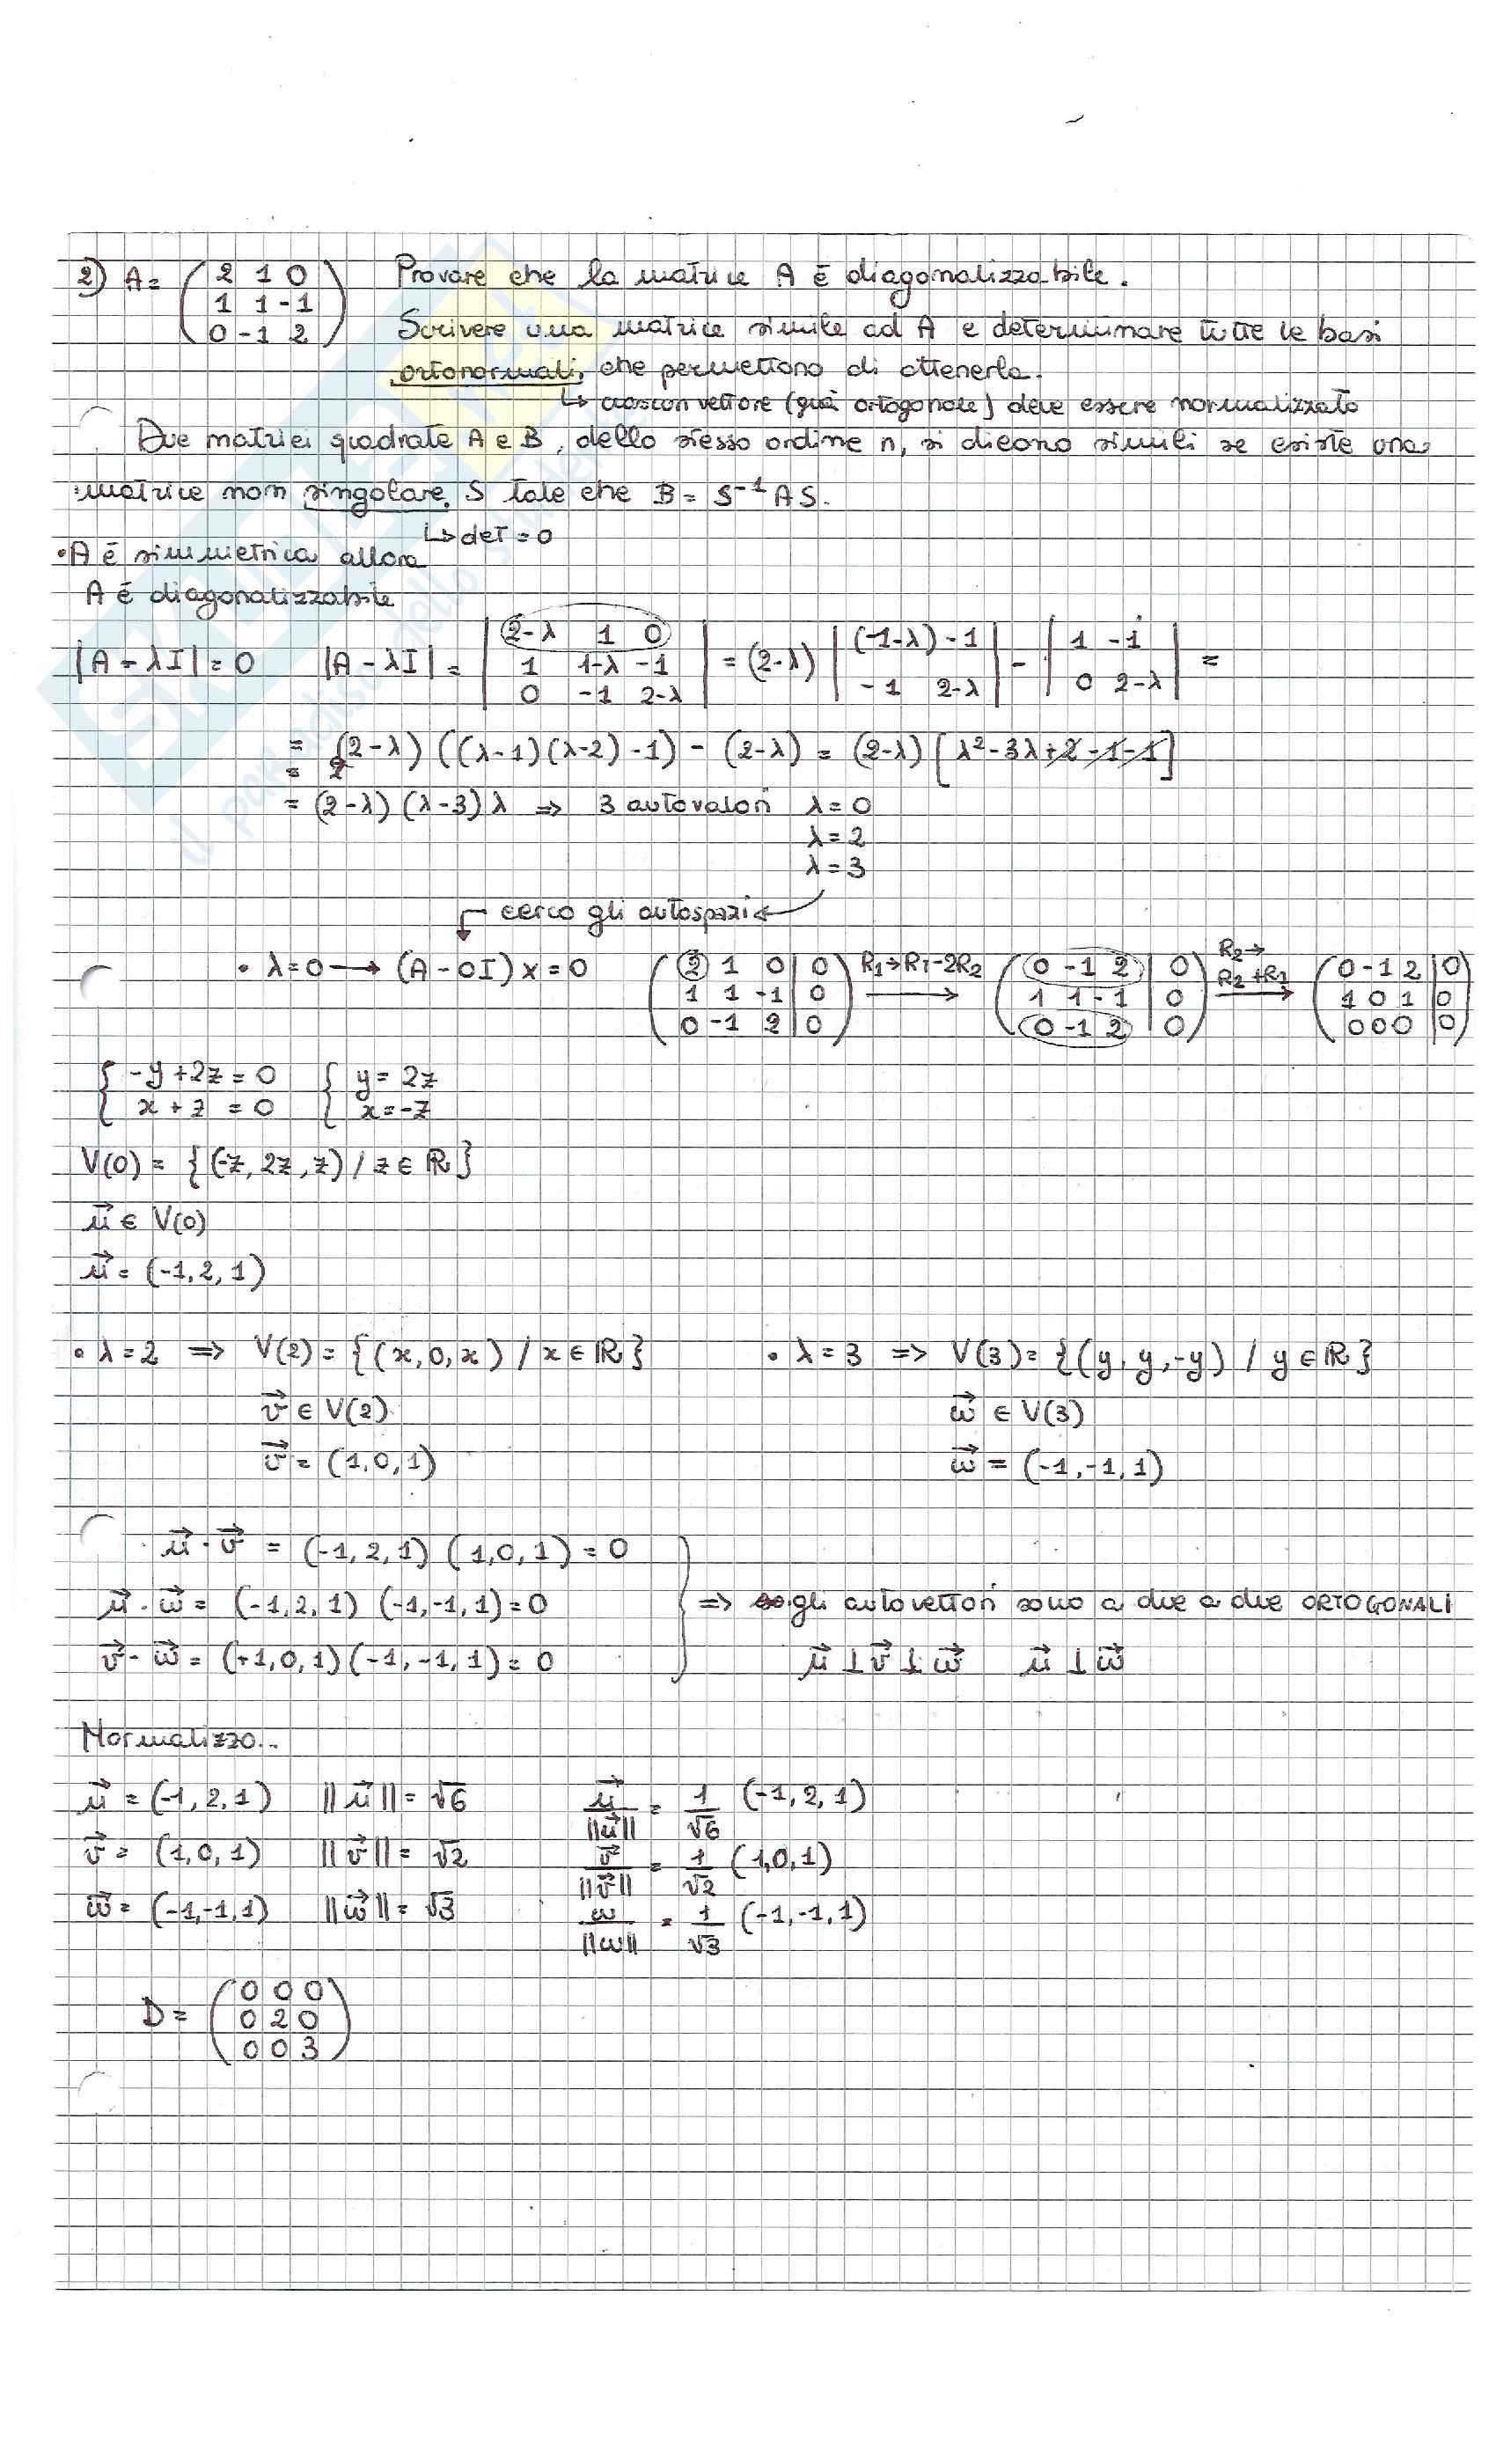 2) A = ( 2 1 0 Provare che la matrice A è diagonalizzabile.
1 1 -1
0 -1 2 ) Scrivere una matrice simile ad A e determinare tutte le basi
ortonormali, che permettono di ottenerla.
↳ ciascun vettore (già ortogonale) deve essere normalizzato
Due matrici quadrate A e B, dello stesso ordine n, si dicono simili se esiste una
matrice non singolare S tale che B = S⁻¹AS.
↳ det = 0
• A è simmetrica allora
A è diagonalizzabile
|A - λI| = 0 |A - λI| = | 2-λ 1 0 | = (2-λ) | (-1-λ) -1 | - | 1 -1 | =
| 1 1-λ -1 | | -1 2-λ | | 0 2-λ |
| 0 -1 2-λ |
= (2-λ) ((λ-1)(λ-2) -1) - (2-λ) = (2-λ) [λ² - 3λ + 2 - 1 - 1]
= (2-λ)(λ-3)λ ⇒ 3 autovalori λ = 0
λ = 2
λ = 3
cerco gli autospazi
• λ = 0 → (A - 0I) x = 0 ( 2 1 0 | 0 ) R₁→R₁-2R₂ ( 0 -1 2 | 0 ) R₂→R₂+R₁ ( 0 -1 2 | 0 )
( 1 1 -1 | 0 ) → ( 1 1 -1 | 0 ) → ( 1 0 1 | 0 )
( 0 -1 2 | 0 ) ( 0 -1 2 | 0 ) ( 0 0 0 | 0 )
{ -y + 2z = 0 { y = 2z
{ x + z = 0 { x = -z
V(0) = {(-z, 2z, z) / z ∈ ℝ}
u⃗ ∈ V(0)
u⃗ = (-1, 2, 1)
• λ = 2 ⇒ V(2) = {(x, 0, x) / x ∈ ℝ} • λ = 3 ⇒ V(3) = {(y, y, -y) / y ∈ ℝ}
v⃗ ∈ V(2) w⃗ ∈ V(3)
v⃗ = (1, 0, 1) w⃗ = (-1, -1, 1)
u⃗ · v⃗ = (-1, 2, 1) (1, 0, 1) = 0
u⃗ · w⃗ = (-1, 2, 1) (-1, -1, 1) = 0 ⇒ gli autovettori sono a due a due ORTOGONALI
v⃗ · w⃗ = (+1, 0, 1) (-1, -1, 1) = 0 u⃗ ⊥ v⃗ ⊥ w⃗ u⃗ ⊥ w⃗
Normalizzo..
u⃗ = (-1, 2, 1) ||u⃗|| = √6 u⃗/||u⃗|| = 1/√6 (-1, 2, 1)
v⃗ = (1, 0, 1) ||v⃗|| = √2 v⃗/||v⃗|| = 1/√2 (1, 0, 1)
w⃗ = (-1, -1, 1) ||w⃗|| = √3 w/||w|| = 1/√3 (-1, -1, 1)
D = ( 0 0 0
0 2 0
0 0 3 )